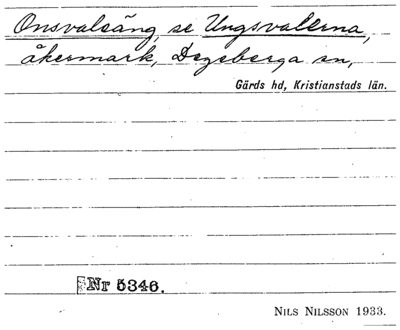 Onsvalsäng, se Ungsvallerna,
åkermark, Degeberga sn,
Gärds hd, Kristianstads län.
Nr 5346.
NILS NILSSON 1933.